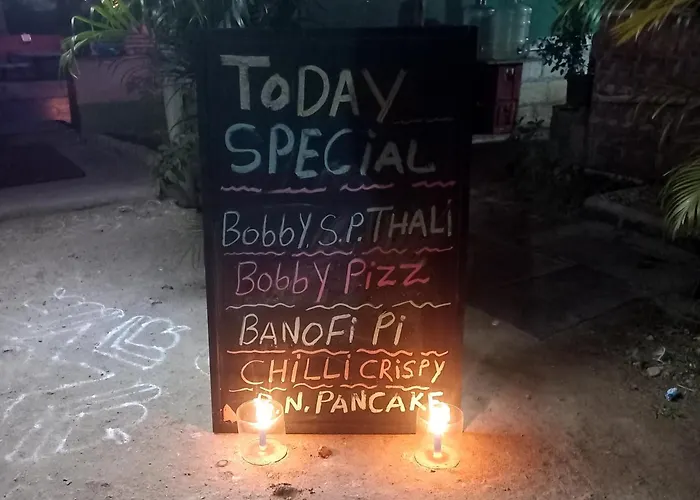 TODAY
SPECiAL
BobbY. S.P. THALi
BobbY Pizz
BANOFi Pi
CHiLLi CRiSPY
N. PANCAKE